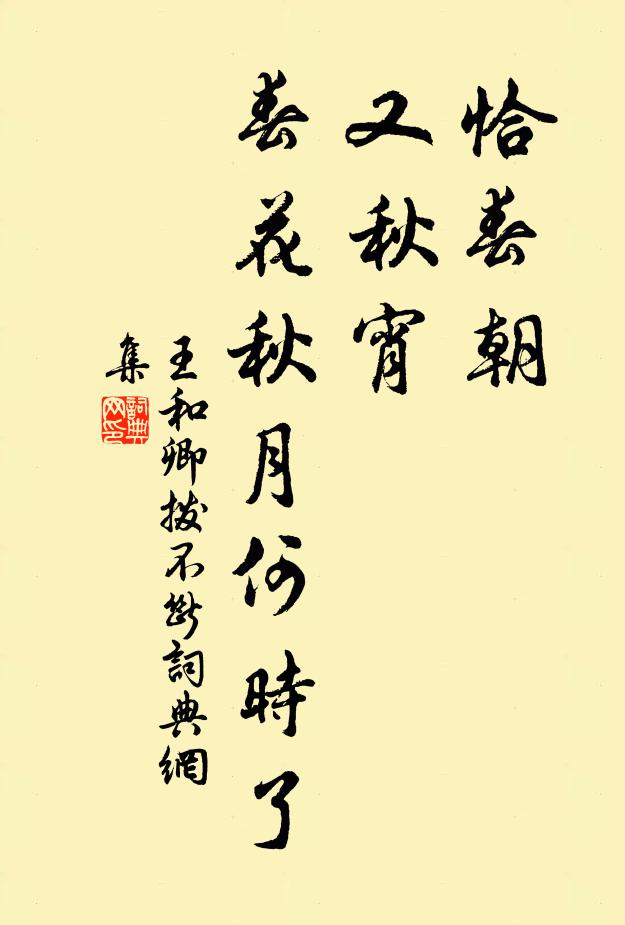 恰春朝
又秋宵
春花秋月何時了
王和卿撥不斷詞典網
集
詞典
网印